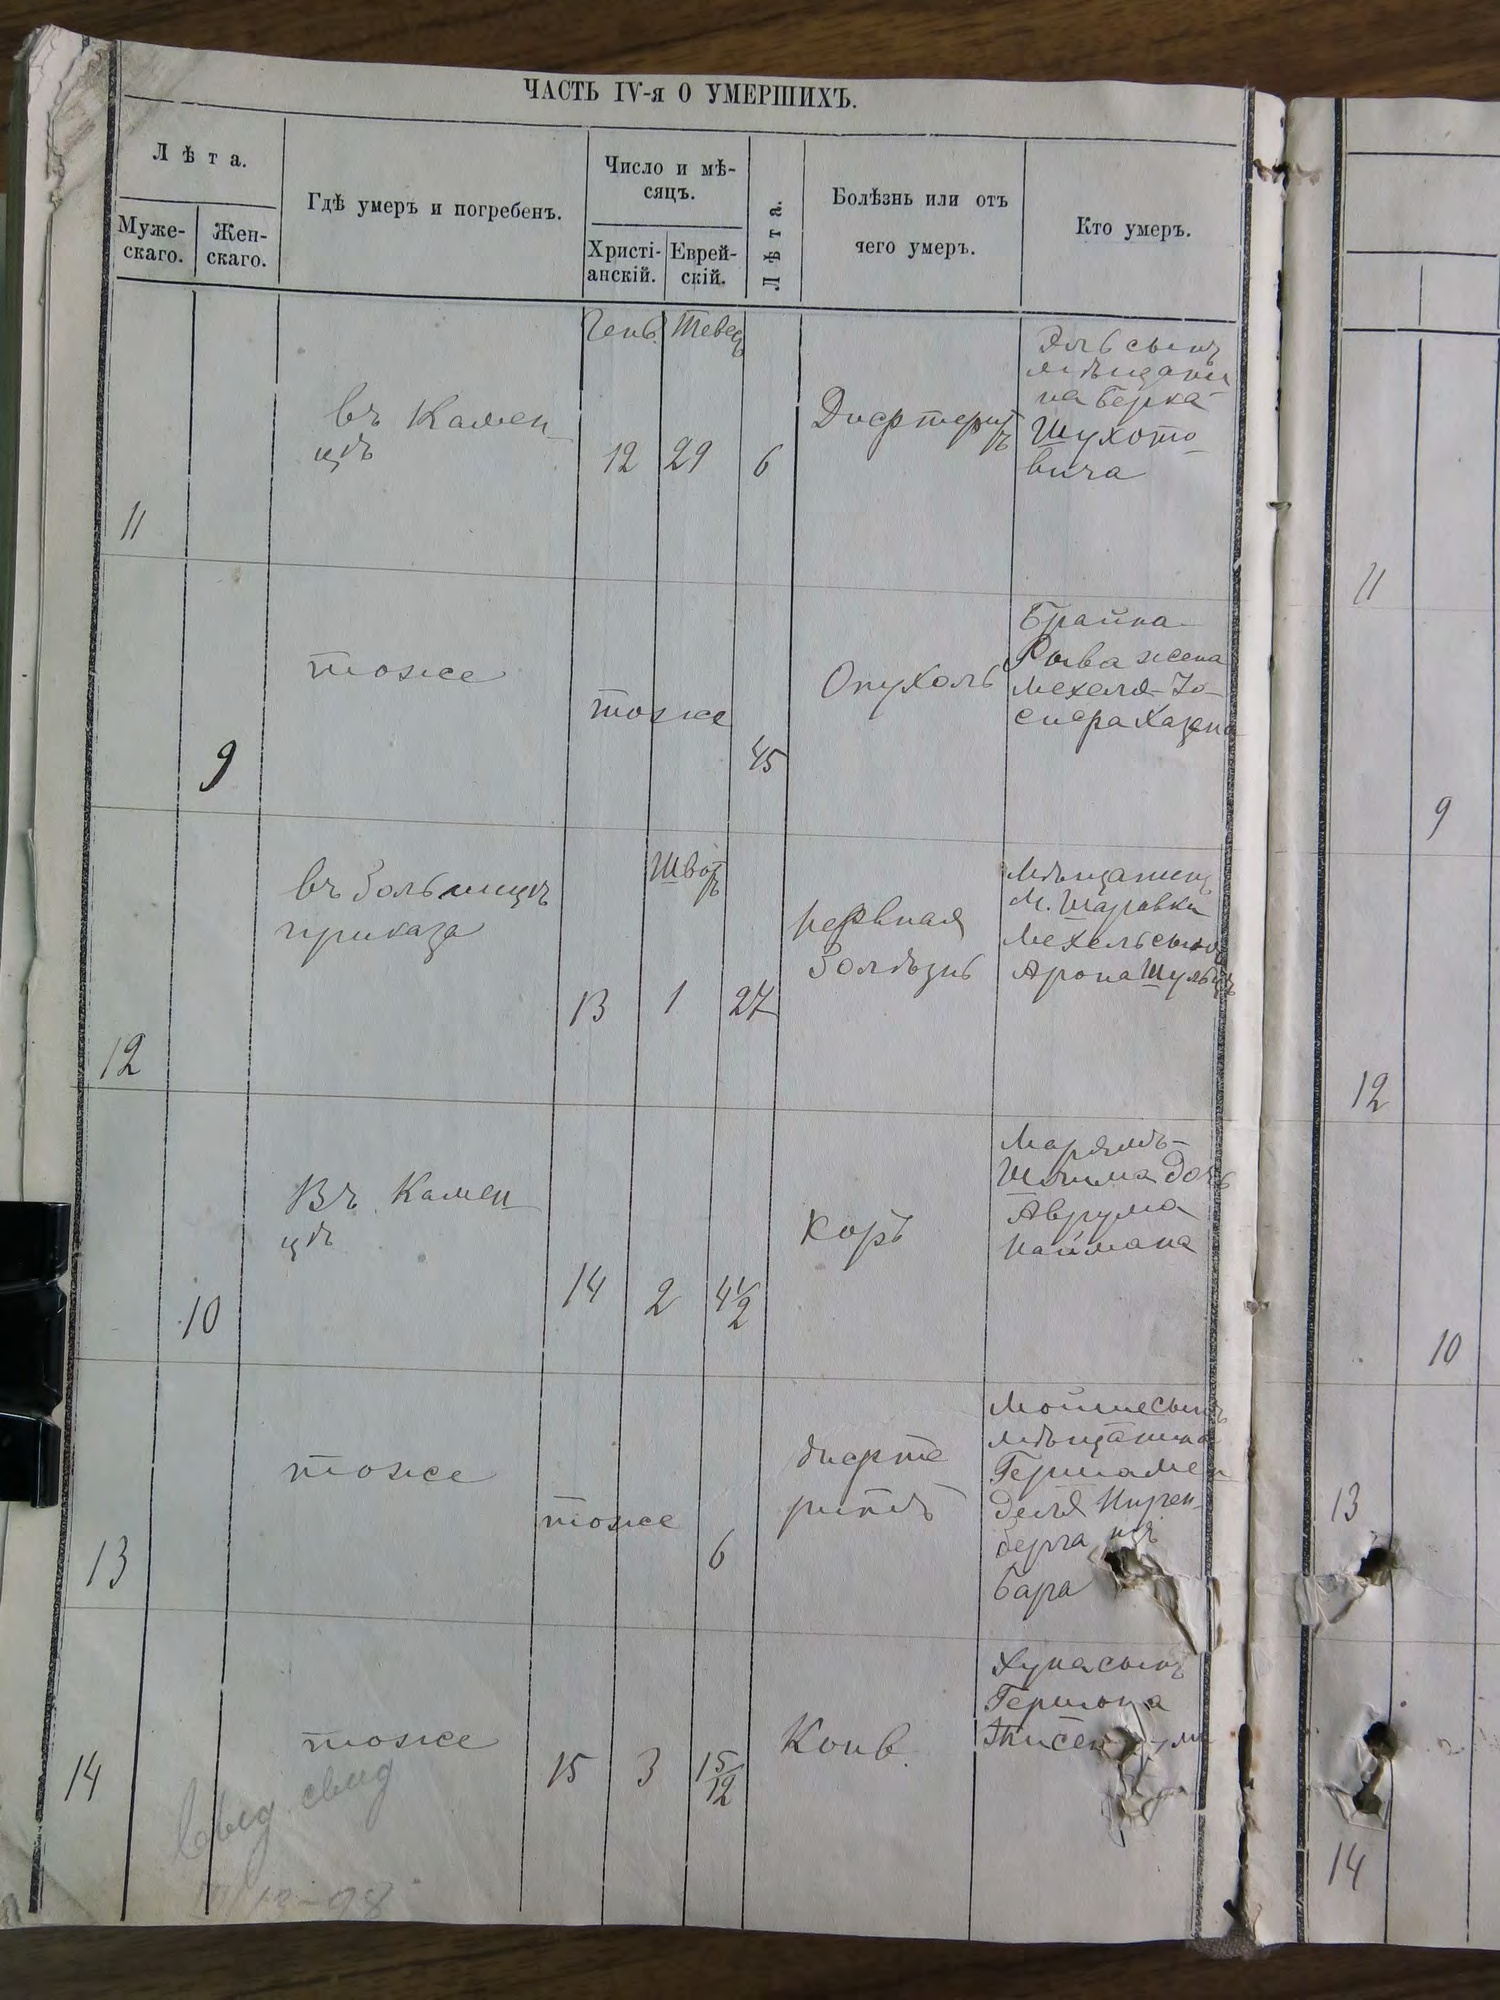 ЧАСТЬ IV-я О УМЕРШИХЪ.
Лѣта.
Муже-
скаго.
Жен-
скаго.
Гдѣ умеръ и погребенъ.
Число и мѣ-
сяцъ.
Христі-
анскій.
Еврей-
скій.
Лѣта.
Болѣзнь или отъ
чего умеръ.
Кто умеръ.
11
въ Камен
цѣ
Генв.
12
Тевец
29
6
Дифтеритъ
сынъ
мѣщани
на Берка
Шухото
вича
11
9
тоже
тоже
45
Опухоль
Брайна
Рыва жена
Мехеля Іо
сифа Хазана
9
12
въ Больницѣ
приказа
13
Швотъ
1
27
Нервная
Болѣзнь
Мѣщанинъ
М. Шаровки
Мехель сынъ
Арона Шульцъ
12
10
Въ Камен
цѣ
14
2
4 1/2
Корь
дочь
Аврума
Наймана
10
13
тоже
тоже
6
дифте
ритъ
Мойше сынъ
мѣщанина
Герша Мен
деля Нирен
берга изъ
Бара
13
14
тоже
15
3
1 5/12
Конв.
Хуна сынъ
Гершона
14
свид